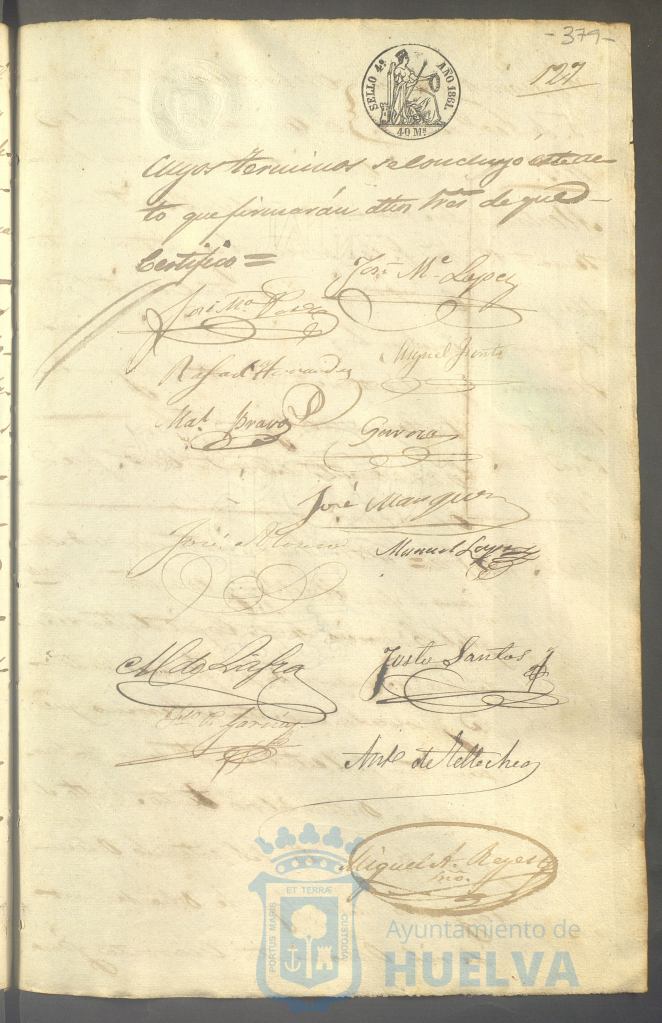 -379-
127
SELLO 4º AÑO 1861.
40 Ms
cuyos terminos se concluyó este ac-
to que firmarán dhos Sres de que
Certifico=
José Mª Lopez
José Mª
Rafael Hernandez
Miguel
Mal Bravo
José Marquez
José Alonso
Manuel Lopez
M. de
Justo Santos
García
Antº de
Miguel A. Reyes
Srio.
ET TERRÆ
PORTUS MARIS
CUSTODIA
Ayuntamiento de
HUELVA